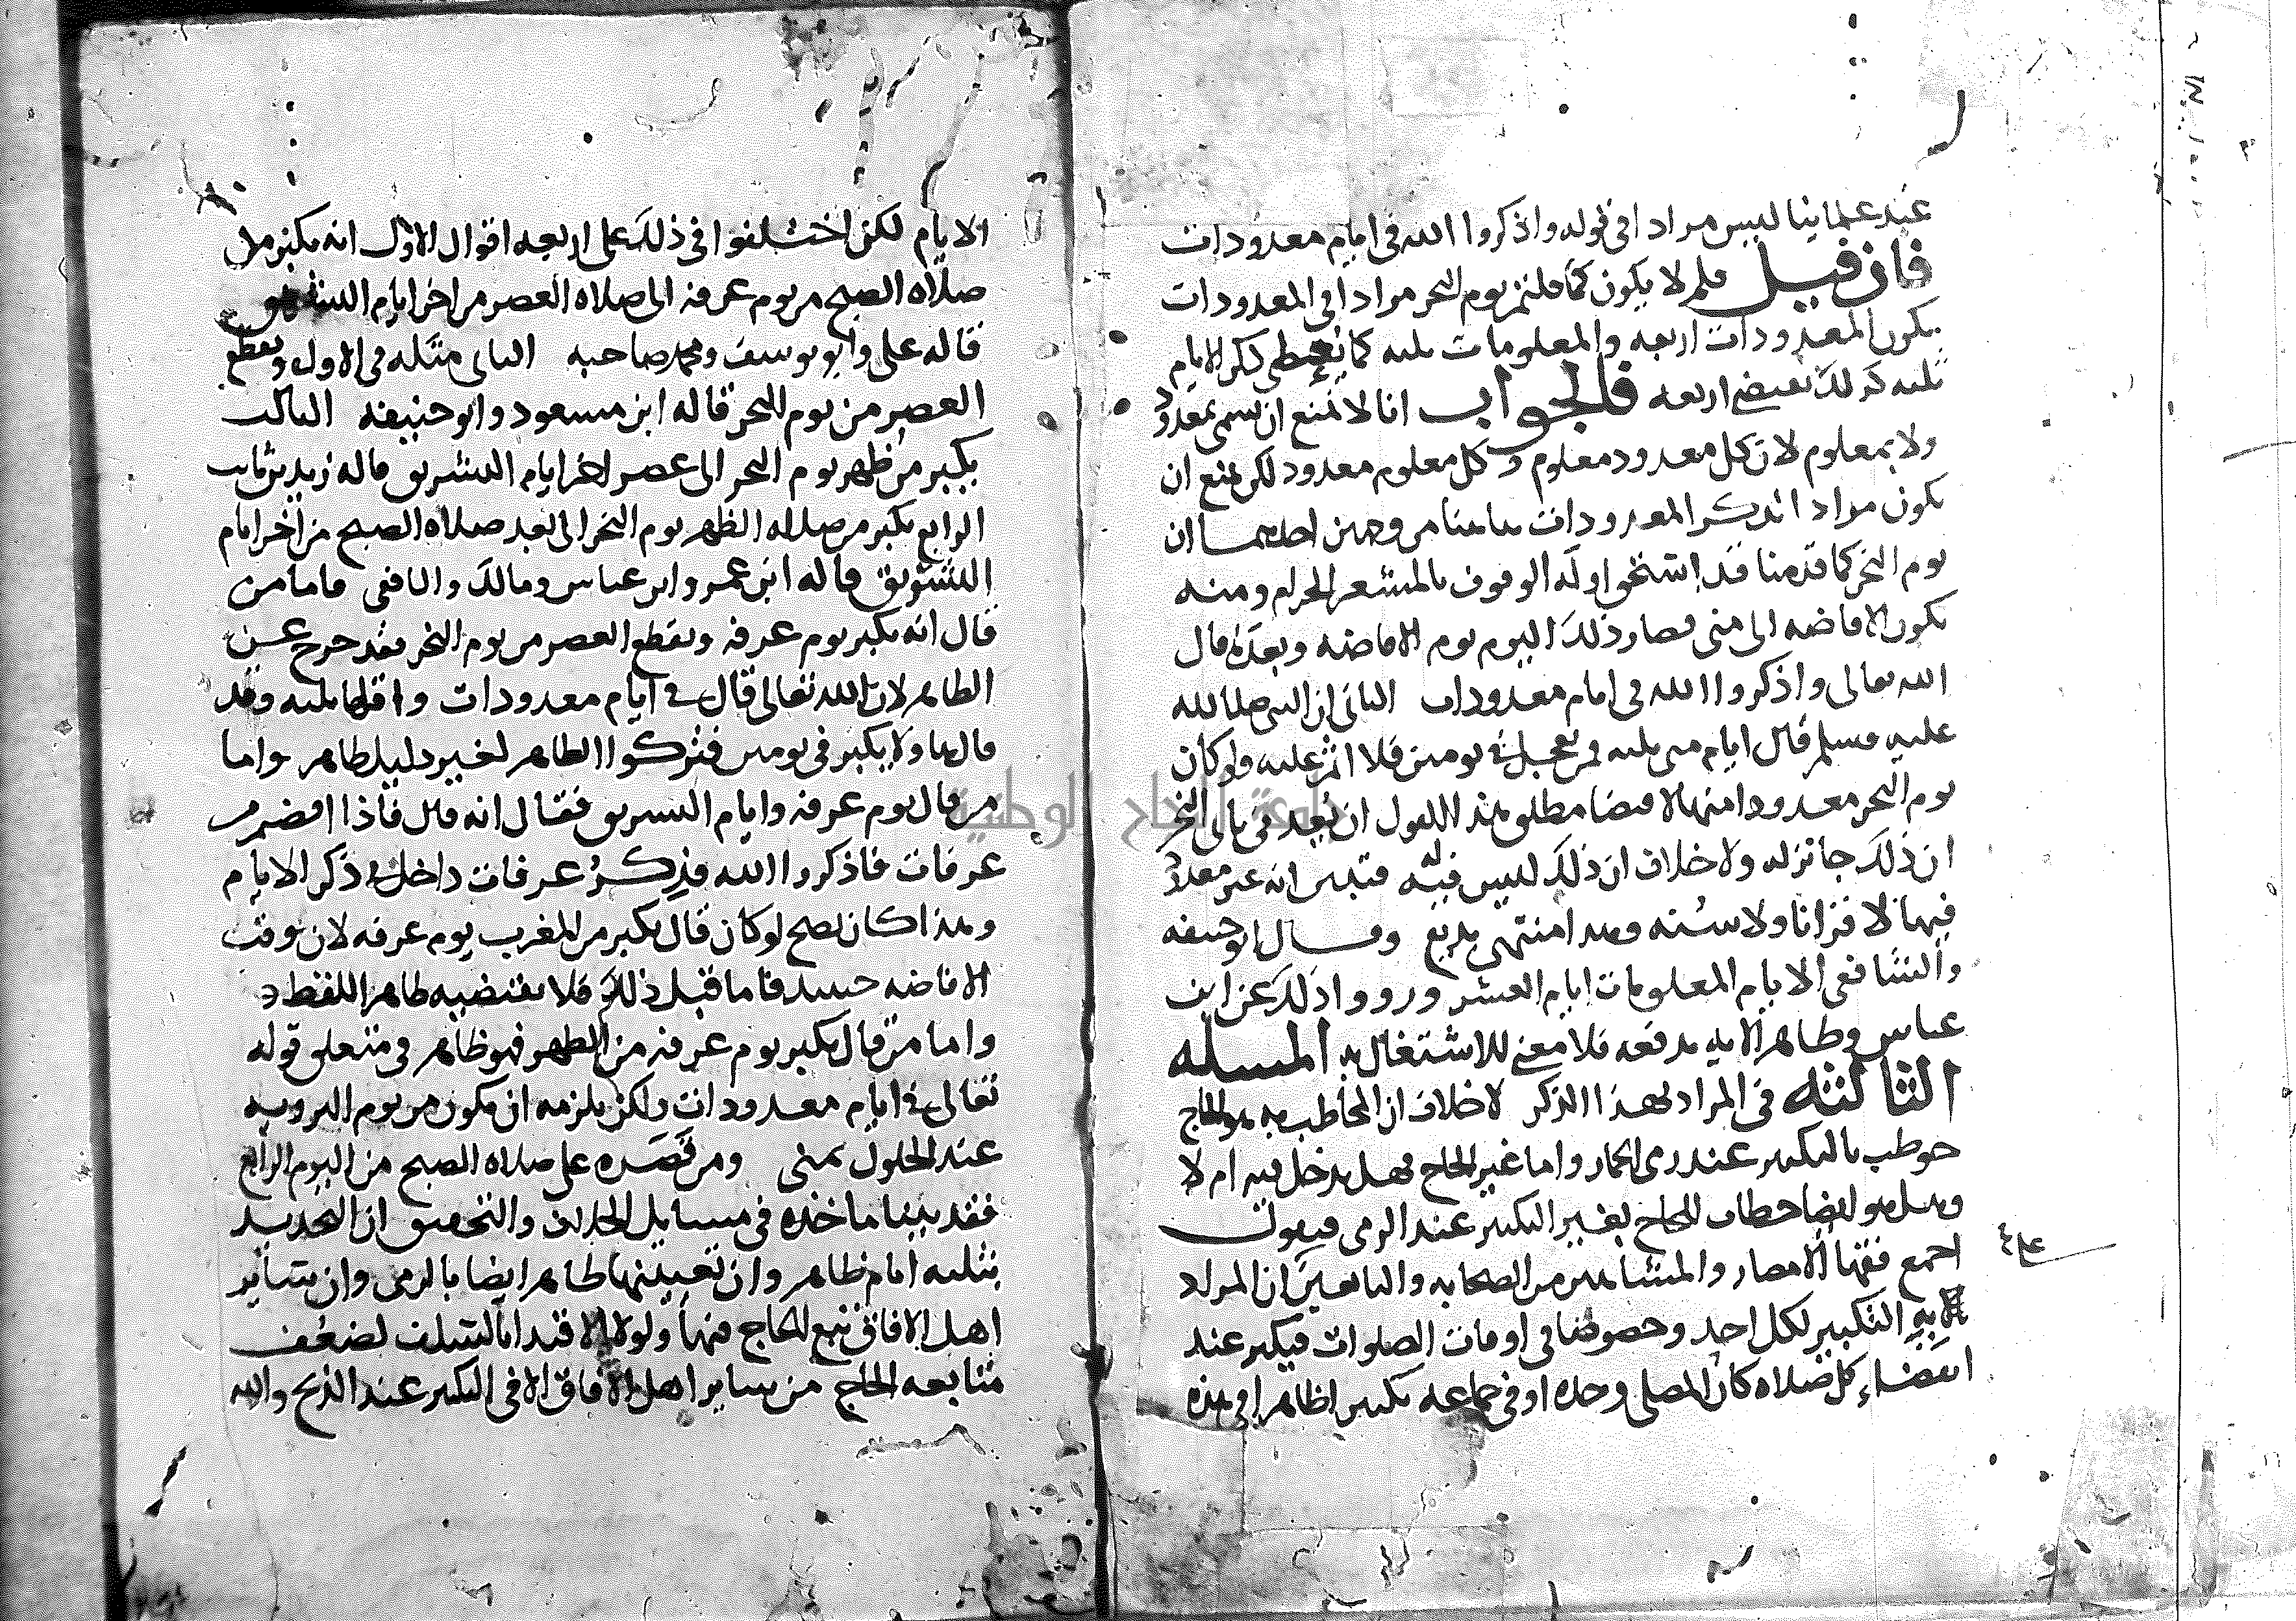 عند علمائنا ليس مرادا في قوله واذكروا الله في ايام معدودات
فان قيل فلم لا يكون كما قلتم يوم النحر مرادا في المعدودات
يكون المعدودات اربعه والمعلومات ثلثه كما يعطى ذكر الايام
ثلثه كذلك يقتضي اربعه فالجواب انا لا نمنع ان يسمى بمعدود
ولا بمعلوم لان كل معدود معلوم وكل معلوم معدود لكن يمنع ان
يكون مرادا بذكر المعدودات هاهنا من وجهين احدهما ان
يوم النحر كما قدمنا قد استحق اوله الوقوف بالمشعر الحرام ومنه
يكون الافاضه الى منى فصار ذلك اليوم يوم الافاضه وبعده قال
الله تعالى واذكروا الله في ايام معدودات الثاني ان النبي صلى الله
عليه وسلم قال ايام منى ثلثه فمن تعجل في يومين فلا اثم عليه ولو كان
يوم النحر معدودا منها لاقتضا مطلق هذا القول ان نفر في ثاني النحر
ان ذلك جائز له ولا خلاف ان ذلك ليس له فتبين انه غير معدود
فيها لا قرانا ولا سنه وهذا منتهى بديع وقال ابو حنيفه
والشافعي الايام المعلومات ايام العشر ورووا ذلك عن ابن
عباس وظاهر الايه يدفعه فلا معنى للاشتغال به المسله
الثالثه في المراد بهذا الذكر لا خلاف ان المخاطب به هو الحاج
خوطب بالتكبير عند رمى الجمار واما غير الحاج فهل يدخل فيه ام لا
وهل هو ايضا خطاب للحاج بغير التكبير عند الرمى فيقول
اجمع فقها الامصار والمشاهير من الصحابه والتابعين ان المراد
به التكبير لكل احد وخصوصا في اوقات الصلوات فيكبر عند
انقضاء كل صلاه كان المصلى وحده او في جماعه تكبيرا ظاهرا في هذه
الايام لكن اختلفوا في ذلك على اربعه اقوال الاول انه يكبر من
صلاه الصبح من يوم عرفه الى صلاه العصر من اخر ايام التشريق
قاله على وابو يوسف ومحمد صاحبه الثاني مثله في الاول ويقطع
العصر من يوم النحر قاله ابن مسعود وابو حنيفه الثالث
يكبر من ظهر يوم النحر الى عصر اخر ايام التشريق قاله زيد بن ثابت
الرابع يكبر من صلاه الظهر يوم النحر الى بعد صلاه الصبح من اخر ايام
التشريق قاله ابن عمر وابن عباس ومالك والشافعي فاما من
قال انه يكبر يوم عرفه ويقطع العصر من يوم النحر فقد خرج عن
الظاهر لان الله تعالى قال في ايام معدودات واقلها ثلثه وقد
قال هاولا يكبر في يومين فتركوا الظاهر لغير دليل ظاهر واما
من قال يوم عرفه وايام التشريق فقال انه قال فاذا افضتم من
عرفات فاذكروا الله فذكر عرفات داخل في ذكر الايام
وهذا كان يصح لو كان قال يكبر من المغرب يوم عرفه لان وقت
الافاضه حينئذ فاما قبل ذلك فلا يقتضيه ظاهر اللفظ
واما من قال يكبر يوم عرفه من الظهر فهو ظاهر في متعلق قوله
تعالى في ايام معدودات ولكن يلزمه ان يكون من يوم الترويه
عند الحلول بمنى ومن قصره على صلاه الصبح من اليوم الرابع
فقد بينا ماخذه في مسايل الخلاف والتحقيق ان التحديد
بثلثه ايام ظاهر وان تعيينها ظاهر ايضا بالرمى وان ساير
اهل الافاق تبع للحاج فيها ولولا الاقتدا بالسلف لضعف
متابعه الحاج من ساير اهل الافاق الا في التكبير عند الذبح والله